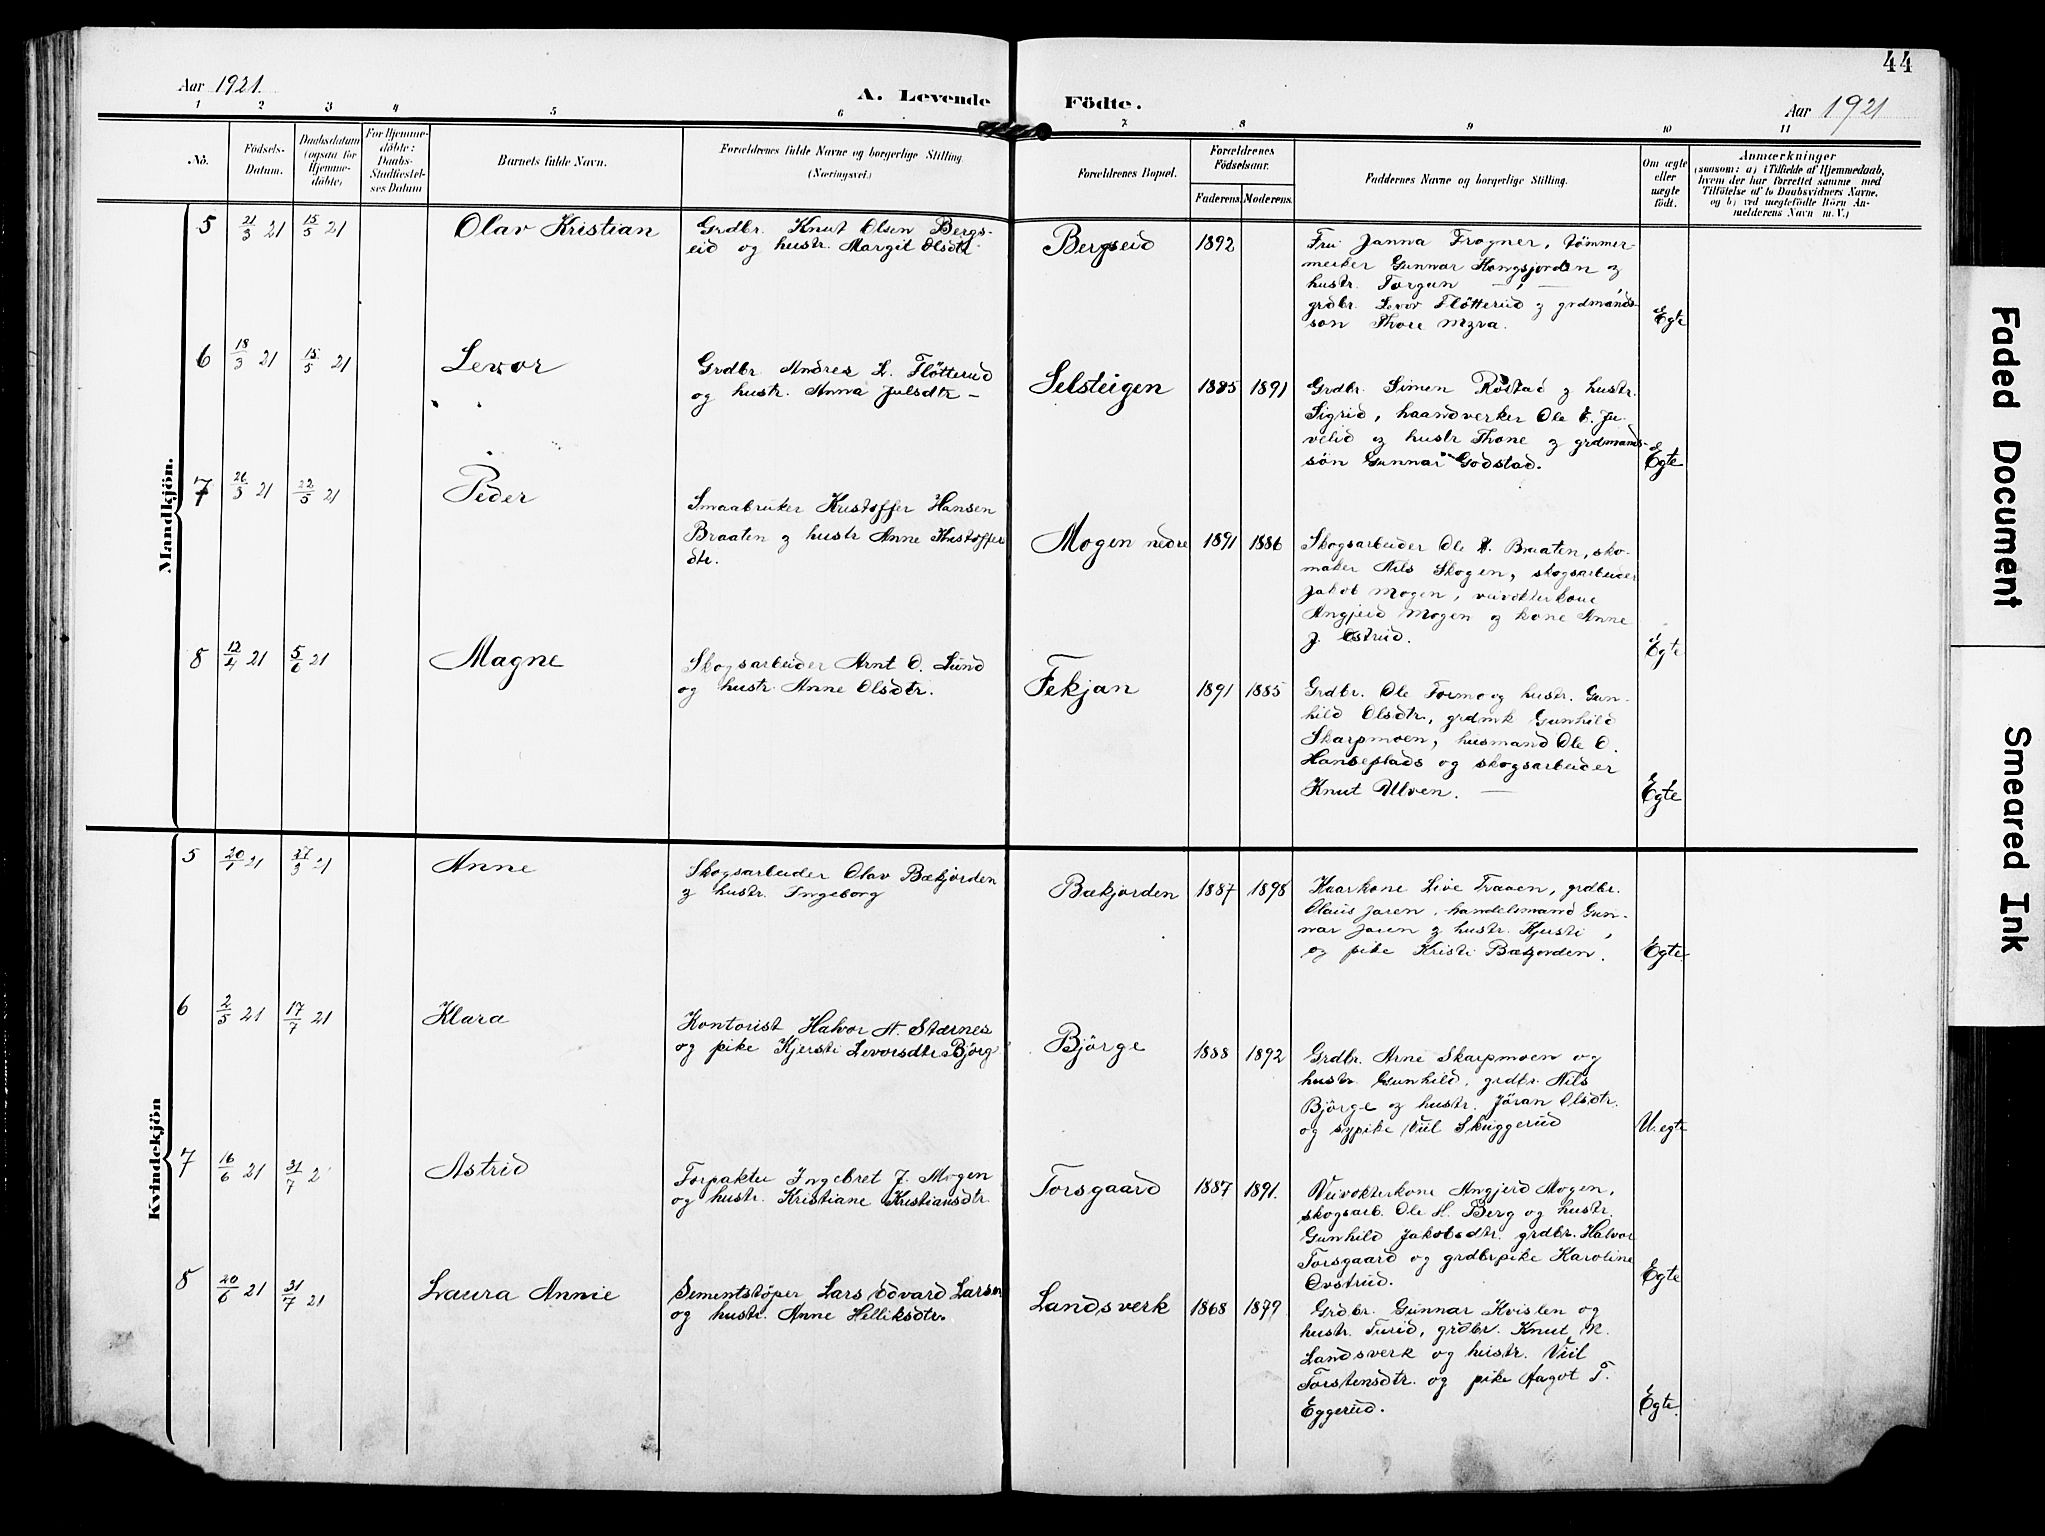 44
Aar 1921.
A. Levende
Födte.
Aar 1921
1 2 3 4 5 6 7 8 9 10 11
No.
Födsels-
Datum.
Daabsdatum
(ogsaa for
Hjemme-
döbte)
For Hjemme-
döbte:
Daabs-
Stadfæstel-
ses Datum
Barnets fulde Navn.
Forældrenes fulde Navne og borgerlige Stilling.
(Næringsvei.)
Forældrenes Bopæl.
Forældrenes
Födselsaar.
Faderens
Moderens.
Faddernes Navne og borgerlige Stilling.
Om ægte
eller
uægte
födt.
Anmærkninger
(saasom: a) i Tilfælde af Hjemmedaab,
hvem der har forrettet samme med
Tilföielse af to Daabsvidners Navne.
og b) ved uægtefödte Börn An-
melderens Navn m. V.)
Mandkjön.
5 21/3 21 15/5 21 Olav Kristian
Grdbr. Knut Olsen Bergs-
eid og hustr. Margit Olsdtr
Bergseid 1892
Fru Janna Frogner, tømmer-
merker Gunnar Kongsjorden og
hustr. Torgun — " —
grdbr. Levor Fløtterud og grdmands-
søn Thore Myra.
Egte
6 18/3 21 15/5 21 Levor
Grdbr Andres L. Fløtterud
og hustr. Anna Julsdtr –
Selsteigen 1885 1891
Grdbr. Simen Rostad og hustr.
Sigrid, haandverker Ole E. Ju-
velid og hustr Thone og grdmands-
søn Gunnar Godstad.
Egte
7 26/3 21 22/5 21 Peder
Smaabruker Kristoffer Hansen
Braaten og hustr Anne Kristoffer
dtr.
Mogen nedre 1891 1886
Skogsarbeider Ole Braaten, sko-
maker Nils Skogen, skogsarbeider
Jakob Mogen, veivokterkone
Angjerd Mogen og kone Anne
J. Ostrud.
Egte
8 12/4 21 5/6 21 Magne
Skogsarbeider Arnt O. Lund
og hustr Anne Olsdtr.
Fekjan 1891 1885
Grdbr. Ole Formo og hustr. Gun-
hild Olsdtr, grdmk Gunhild
Skarpmoen, husmand Ole O.
Hanseplads og skogsarbeider
Knut Ulven. —
Egte
Kvindekjön
5 20/1 21 27/3 21 Anne
Skogsarbeider Olav Bækjorden
og hustr. Ingeborg
Bækjorden 1887 1898
Kaarkone Live Traaen, grdbr.
Olaus Jaren, handelsmand Gun-
nar Jaren og hustr. Kjersti,
og pike Kristi Bækjorden.
Egte.
6 2/5 21 17/7 21 Klara
Kontorist Halvor H. Stærnes
og pike Kjersti Levorsdtr Bjørg
Bjørge 1888 1892
Grdbr. Arne Skarpmoen og
hustr. Gunhild, grdbr. Nils
Bjørge og hustr. Jøran Olsdtr.
og sypike Viil Skuggerud
U.egte
7 16/6 21 31/7 2 Astrid
Forpakter Ingebret J. Mogen
og hustr. Kristiane Kristiansdtr.
Torsgaard 1887 1891.
Veivokterkone Angjerd Mogen,
skogsarb. Ole H. Berg og hustr.
Gunhild Jakobsdtr. grdbr. Halvor
Torsgaard og grdbrpike Karoline
Ovstrud.
Egte
8 20/6 21 31/7 21 Laura Annie
Sementstøper Lars Edvard Larsen
og hustr. Anne Helliksdtr.
Landsverk 1868 1879
Grdbr. Gunnar Kvislen og
hustr. Turid, grdbr. Knut K.
Landsverk og hustr. Viil
Torstensdtr. og pike Aagot T.
Eggerud.
Egte.
Faded Document
Smeared Ink